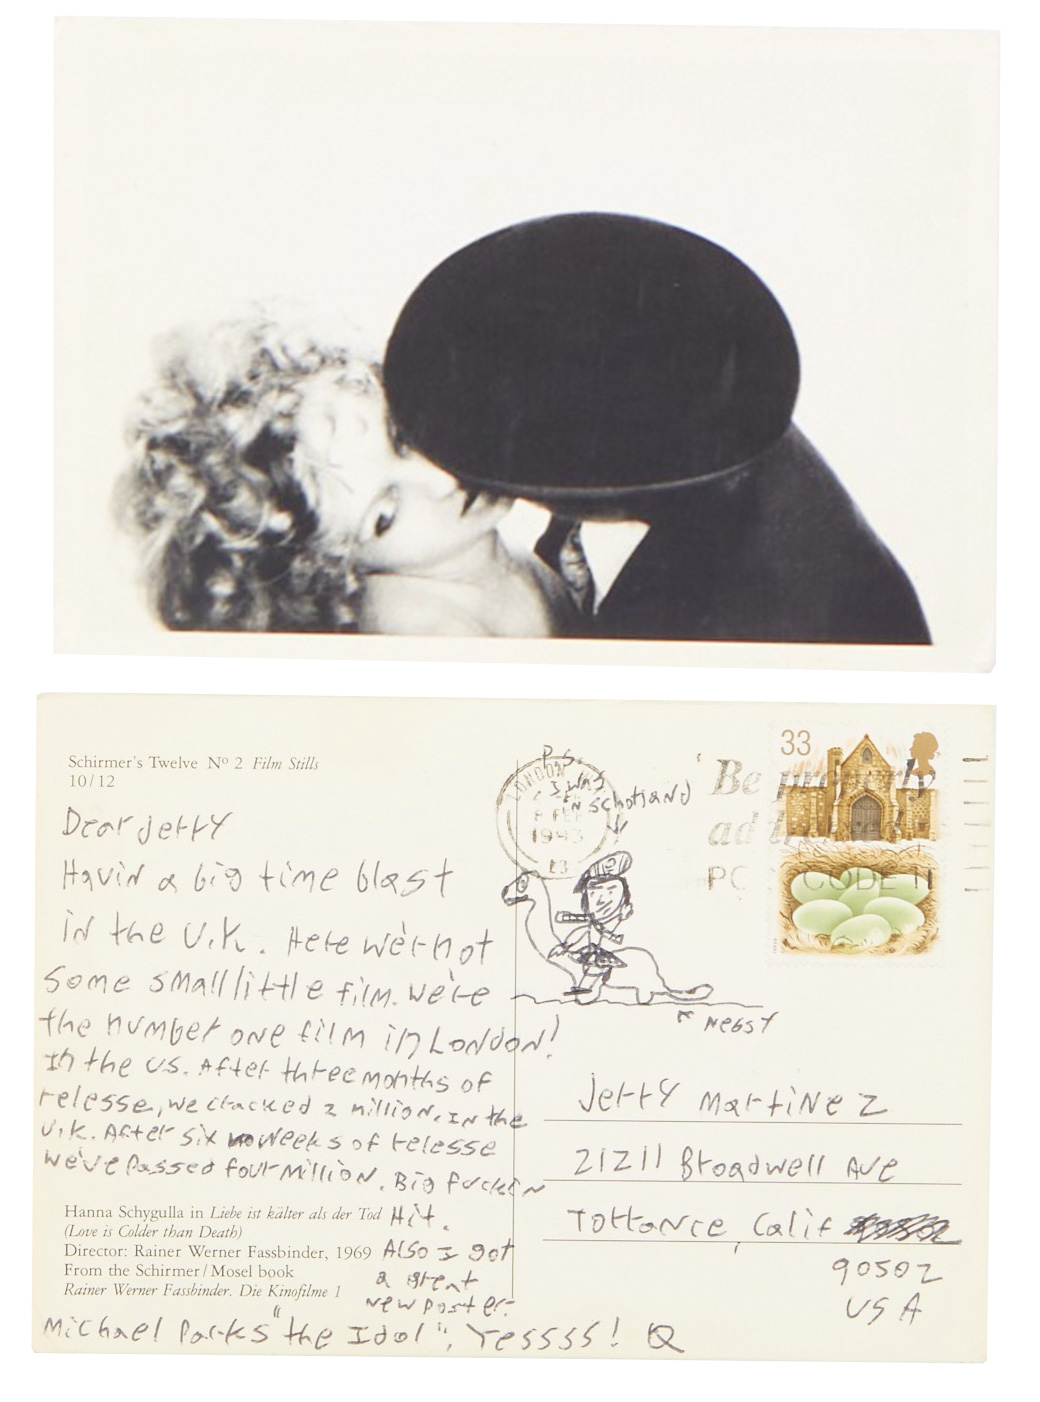 Schirmer's Twelve Nº 2 Film Stills
10/12
Dear Jerry
Havin a big time blast
in the U.K. Here we're not
some small little film. We're
the number one film in London!
In the US. After three months of
relesse, we cracked 2 million. In the
U.K. After six weeks of relesse
we've passed four million. Big fuckin
Hit.
Also I got
a great
new poster.
Michael Parks "the Idol", Yessss! Q
Hanna Schygulla in Liebe ist kälter als der Tod
(Love is Colder than Death)
Director: Rainer Werner Fassbinder, 1969
From the Schirmer/Mosel book
Rainer Werner Fassbinder. Die Kinofilme 1
P.S.
I was
in schotland
LONDON
8 FEB
1993
13
Be properly
PC CODE
33
Nessy
Jerry Martinez
21211 Broadwell Ave
Torrance, Calif
90502
USA